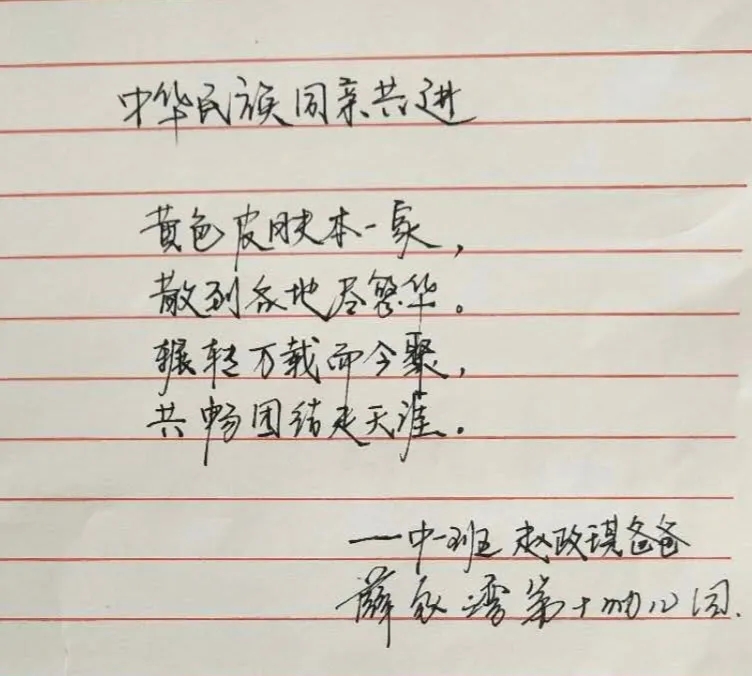 中华民族同亲共进
黄色皮肤本一家，
散到各地尽繁华。
辗转万载而今聚，
共畅团结走天涯。
——中一班 赵政琪爸爸
薛家湾第十幼儿园.